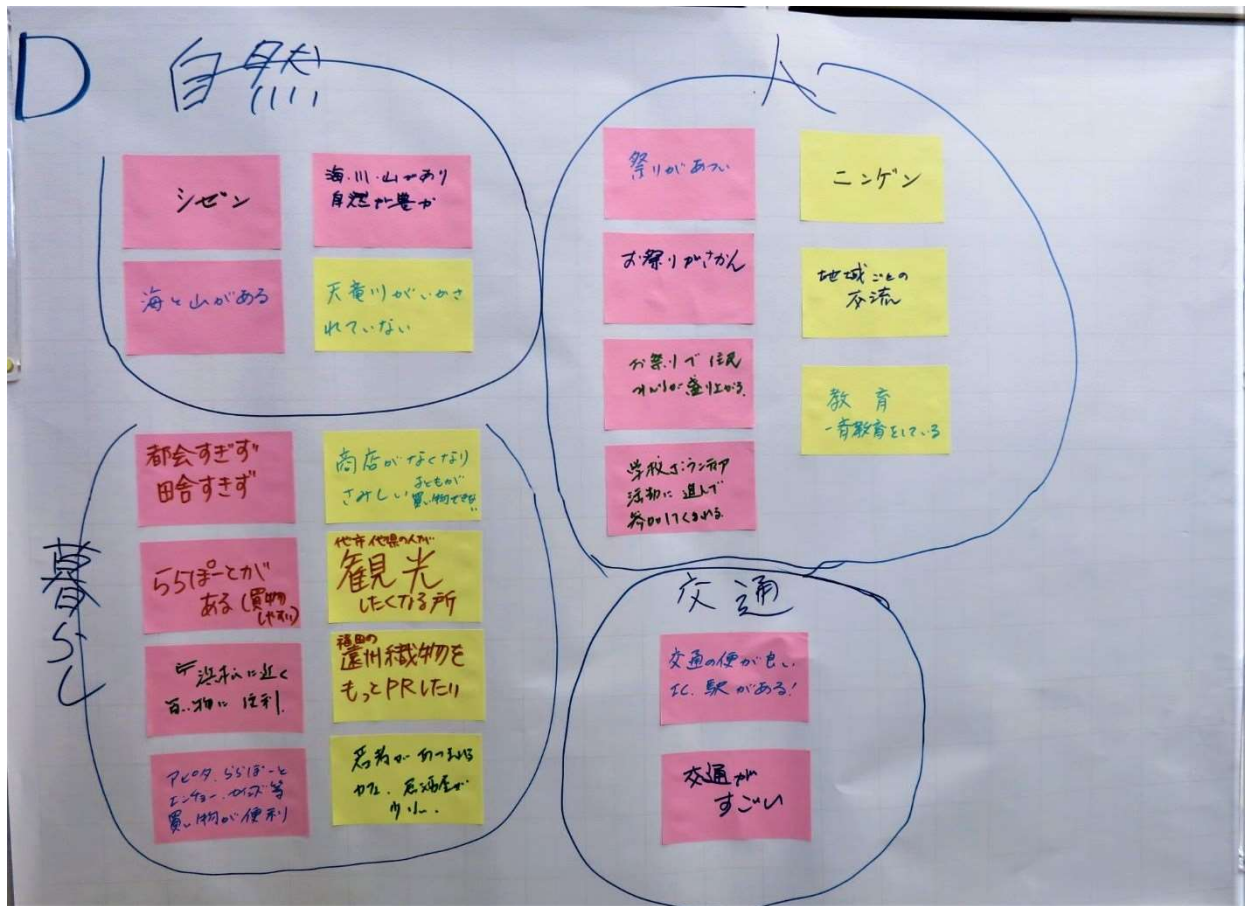 D
自然
シゼン
海・川・山があり
自然が豊か
海と山がある
天竜川がいかさ
れていない
人
祭りがあつい
ニンゲン
お祭りがさかん
地域ごとの
交流
お祭りで住民
が盛り上がる
教育
一斉教育をしている
学校ボランティア
活動に進んで
参加してくれる
暮らし
都会すぎず
田舎すぎず
商店がなくなり
さみしい
買い物できない
ららぽーとが
ある(買物
しやすい)
他市他県の人が
観光
したくなる所
浜松に近く
買い物に便利
福田の
遠州織物を
もっとPRしたい
アピタ、ららぽーと
エンチョー、カインズ等
買い物が便利
若者があつまれる
カフェ、居酒屋が
少ない
交通
交通の便が良い
IC、駅がある!
交通が
すごい